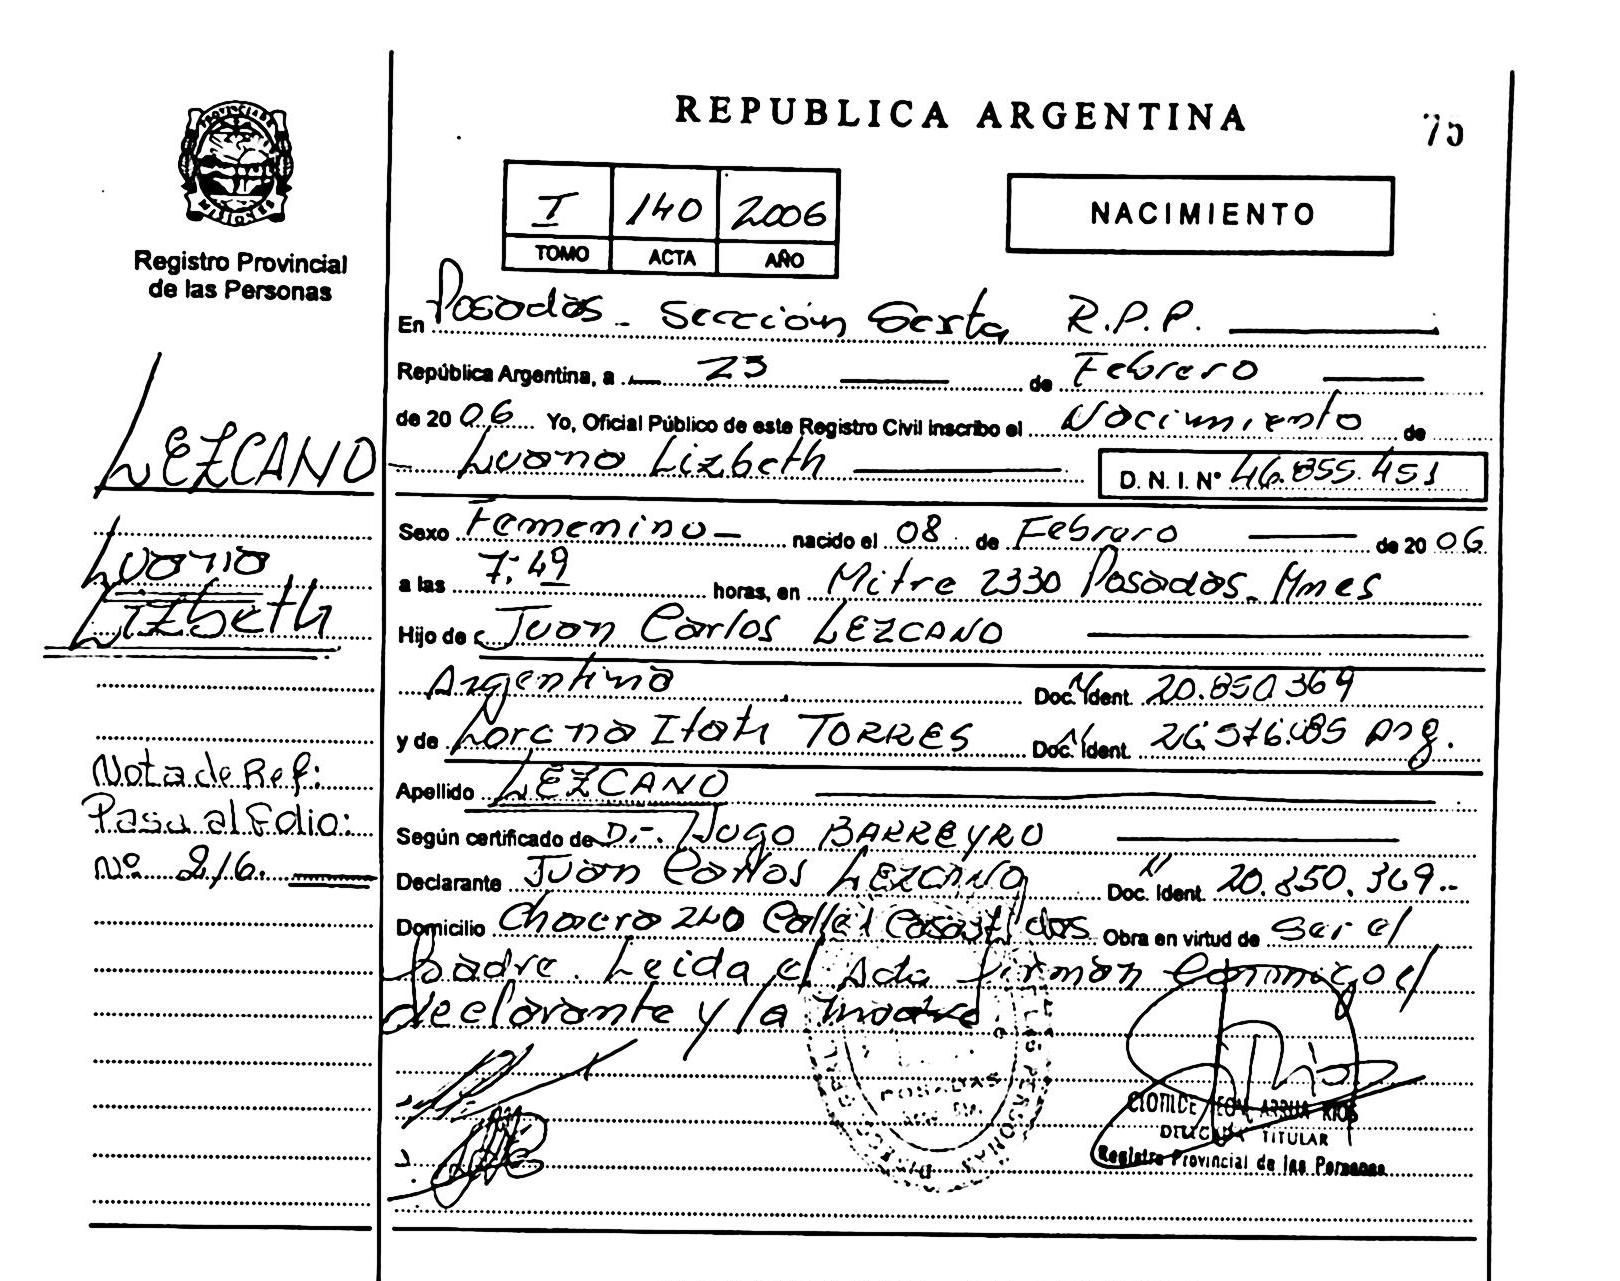 REPUBLICA ARGENTINA
75
PROVINCIA DE
MISIONES
Registro Provincial
de las Personas
I 140 2006
TOMO ACTA AÑO
NACIMIENTO
En Posadas - Sección Sexta R.P.P.
República Argentina, a 23 de Febrero
de 2006 Yo, Oficial Público de este Registro Civil inscribo el Nacimiento de
Luana Lizbeth D. N. I. Nº 46.855.451
Sexo Femenino nacido el 08 de Febrero de 2006
a las 7:49 horas, en Mitre 2330 Posadas. Mnes
Hijo de Juan Carlos LEZCANO
Argentina Doc. Ident. 20.850.369
y de Lorena Itati TORRES Doc. Ident. 26.576.485 Arg.
Apellido LEZCANO
Según certificado de Dr. Hugo BARREYRO
Declarante Juan Carlos LEZCANO Doc. Ident. 20.850.369
Domicilio Chacra 240 Calle Obra en virtud de Ser el
padre. Leida el Acta firman Conmigo el
declarante y la madre.
LEZCANO
Luana
Lizbeth
Nota de Ref:
Pasa al Folio:
Nº 216.
POSADAS
CLOTILDE ARRUA RIOS
DELEGADA TITULAR
Registro Provincial de las Personas